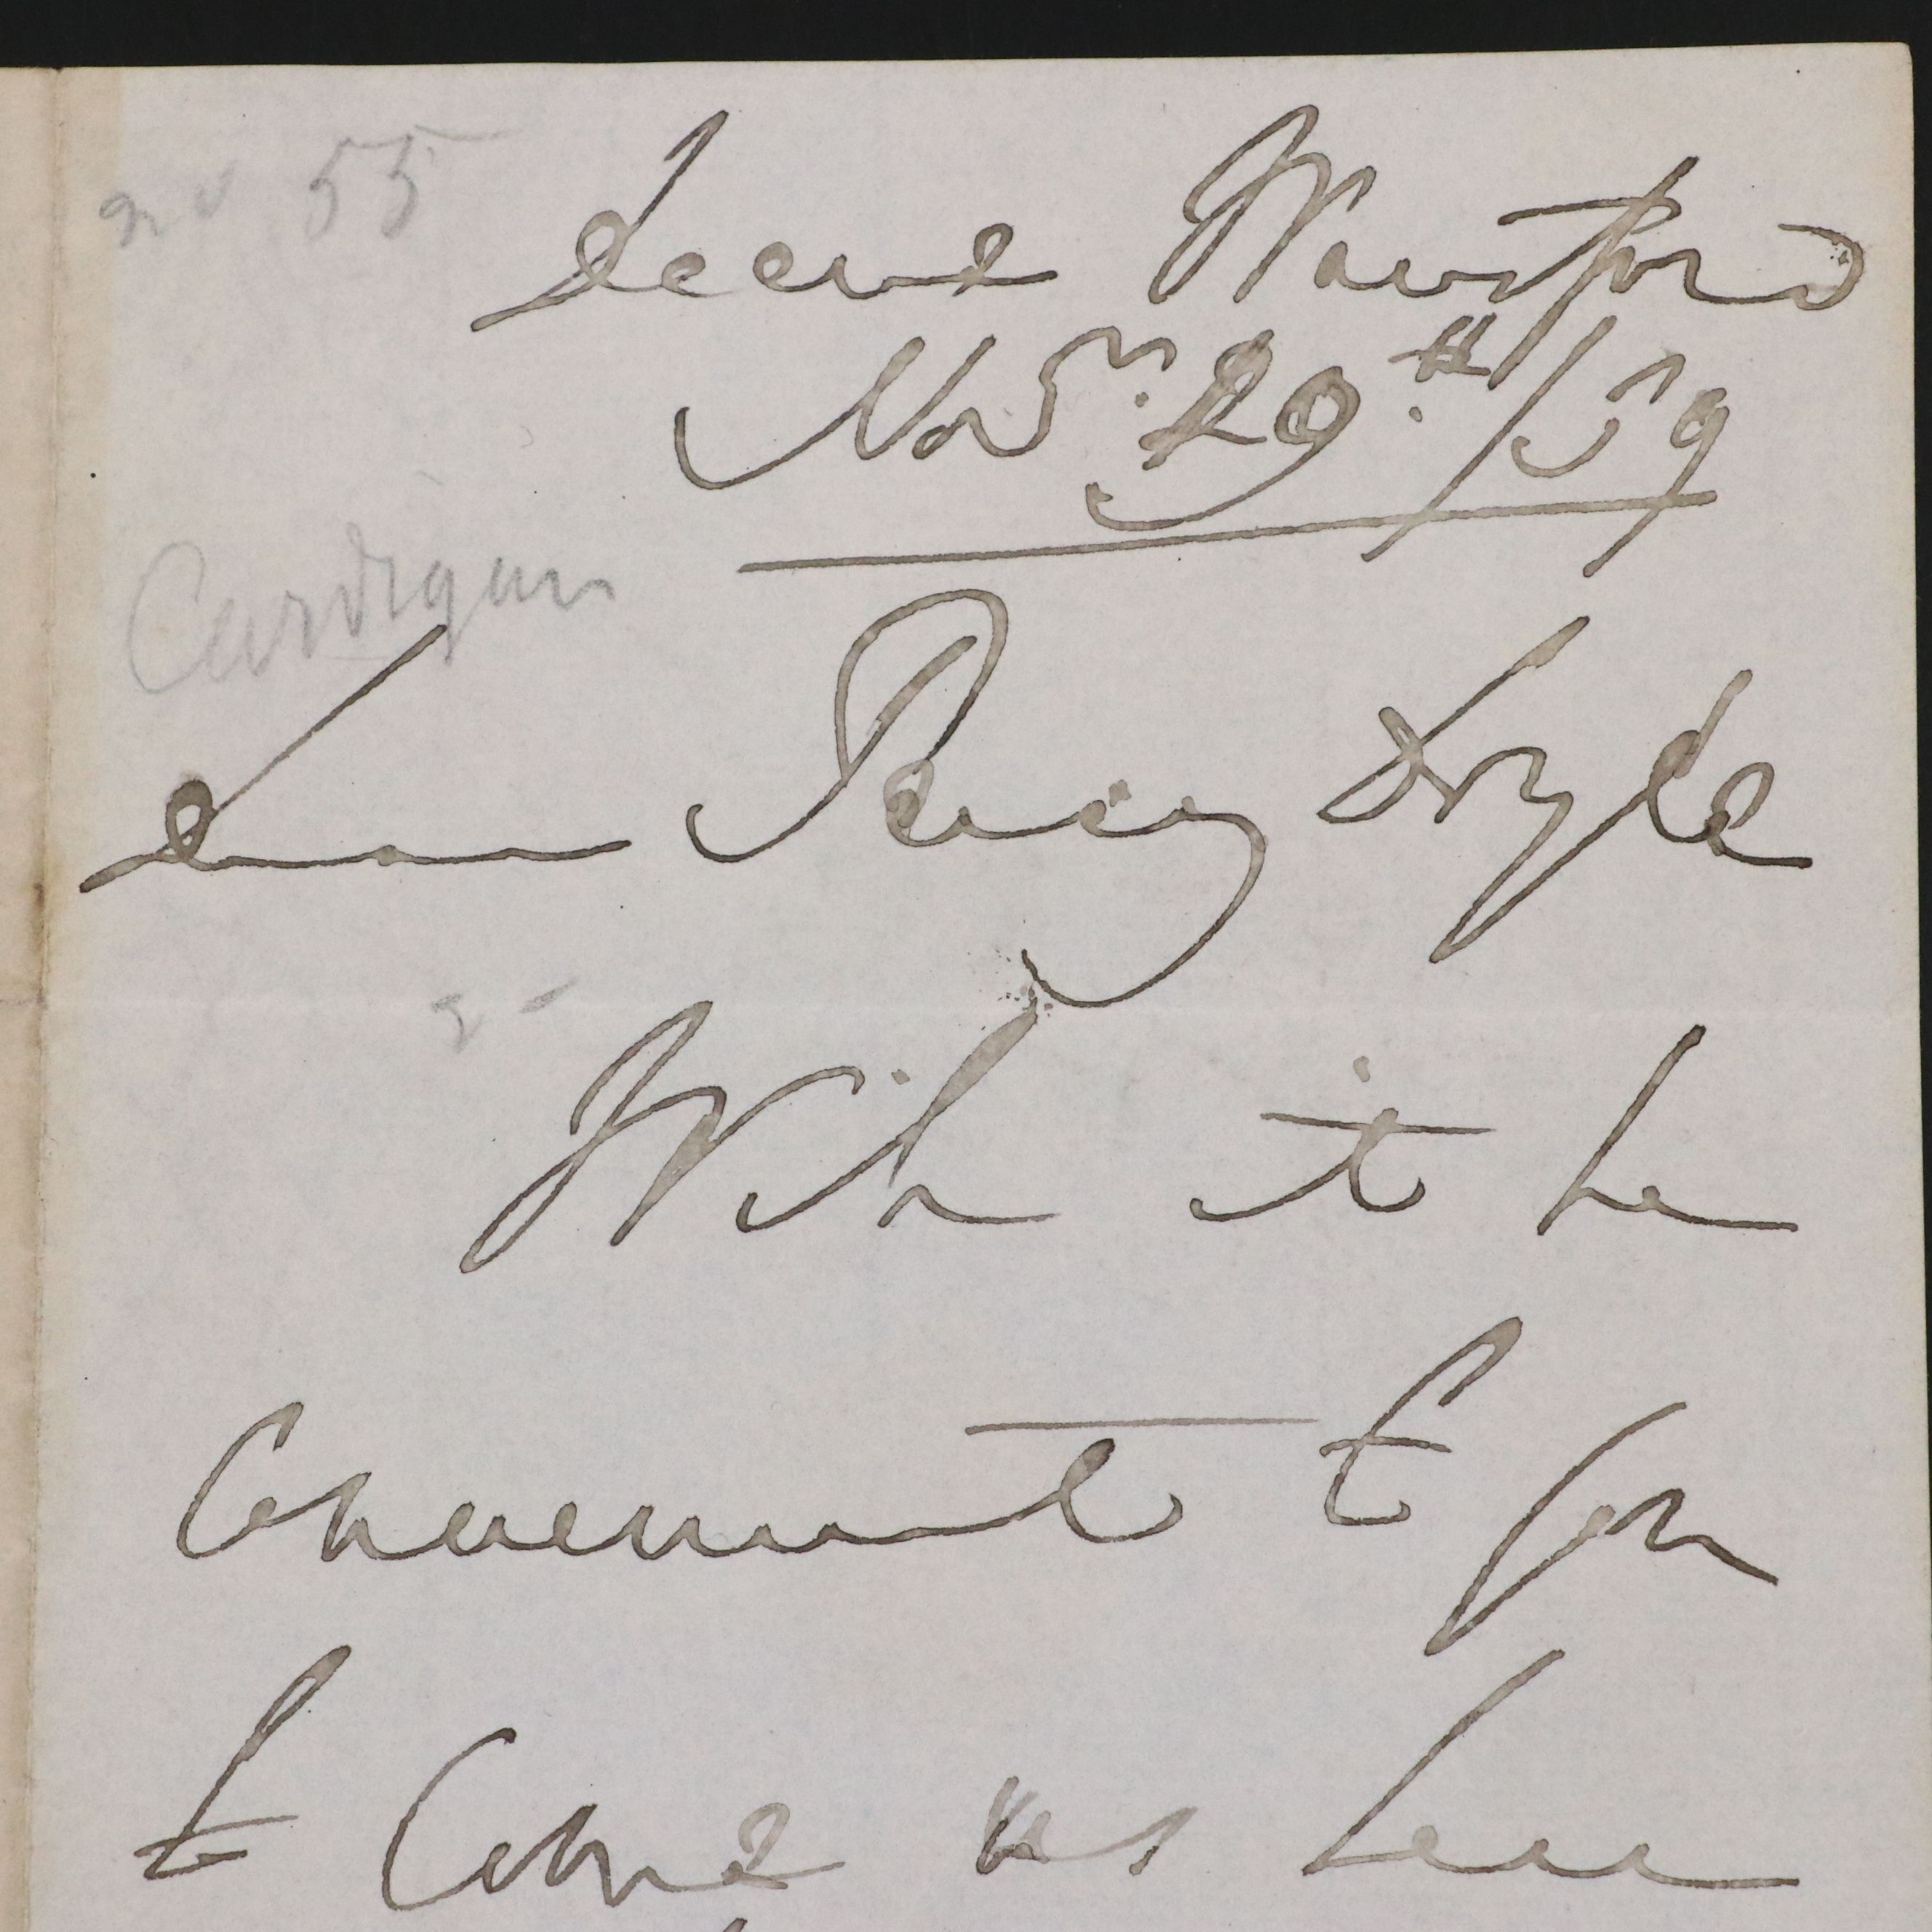 no 55
Deene Wansford
Novr. 29th/59
Cardigan
Dear Percy Doyle
Will it be
Convenient to you
to Come here